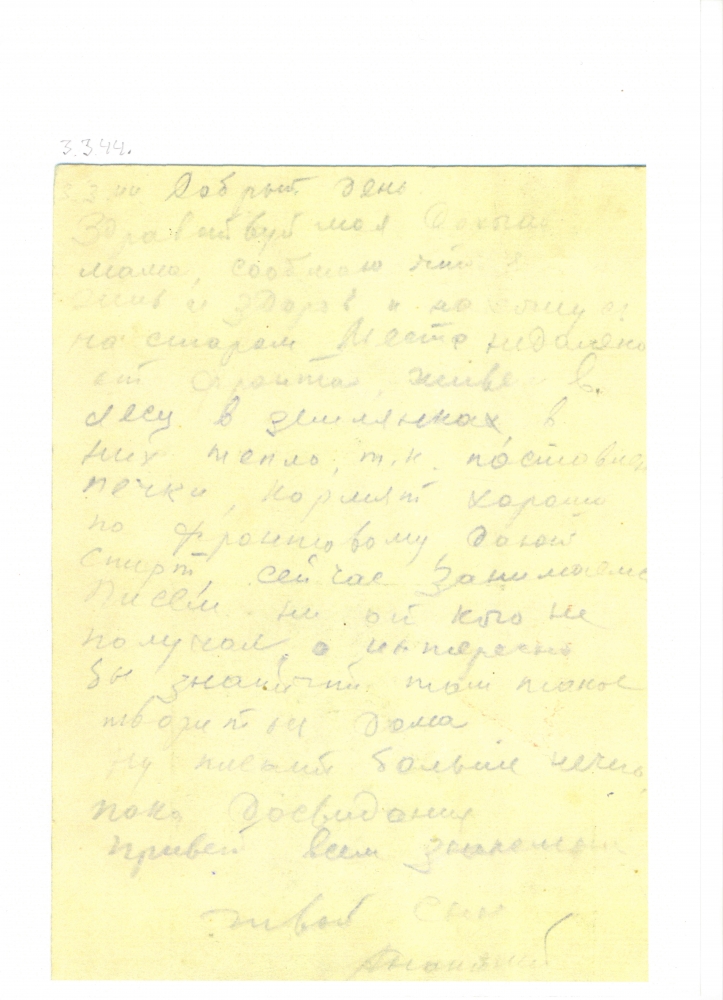 3.3.44.
Добрый день
Здравствуй моя дорогая
мама, сообщаю что
жив и здоров и нахожусь
на старом месте недалеко
от фронта, живем в
лесу в землянках, в
них тепло, т.к. поставлен
печки, кормят хорошо
по фронтовому дают
спирт, сейчас занимаемс
Писем ни от кого не
получал, а интересно
бы знать что там такое
творится дома
Ну писать больше нечего
пока Досвидания
привет всем знакомым
твой сын